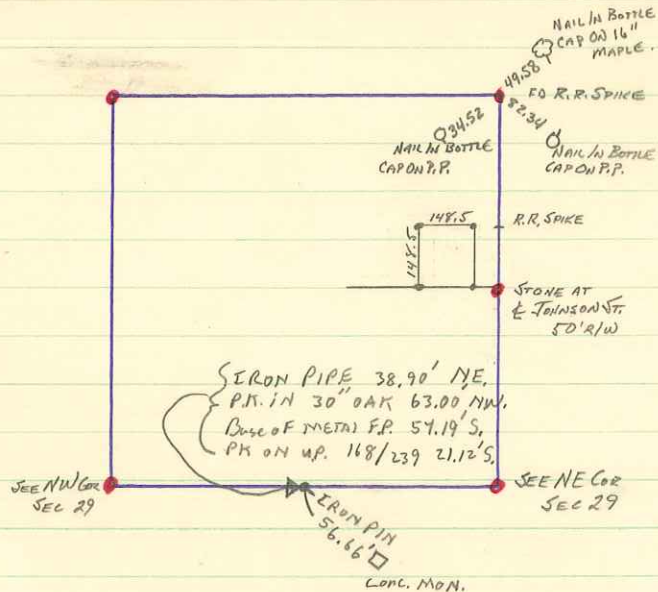 NAIL IN BOTTLE
CAP ON 16"
MAPLE.
49.58
FD R.R. SPIKE
82.34
34.52
NAIL IN BOTTLE
CAP ON P.P.
NAIL IN BOTTLE
CAP ON P.P.
148.5
148.5
R.R. SPIKE
STONE AT
℄ JOHNSON ST.
50' R/W
IRON PIPE 38.90' NE.
P.K. IN 30" OAK 63.00' NW.
Base OF METAL F.P. 57.19' S.
PK ON UP. 168/239 21.12' S.
SEE NW COR
SEC 29
SEE NE COR
SEC 29
IRON PIN
56.66'
CONC. MON.